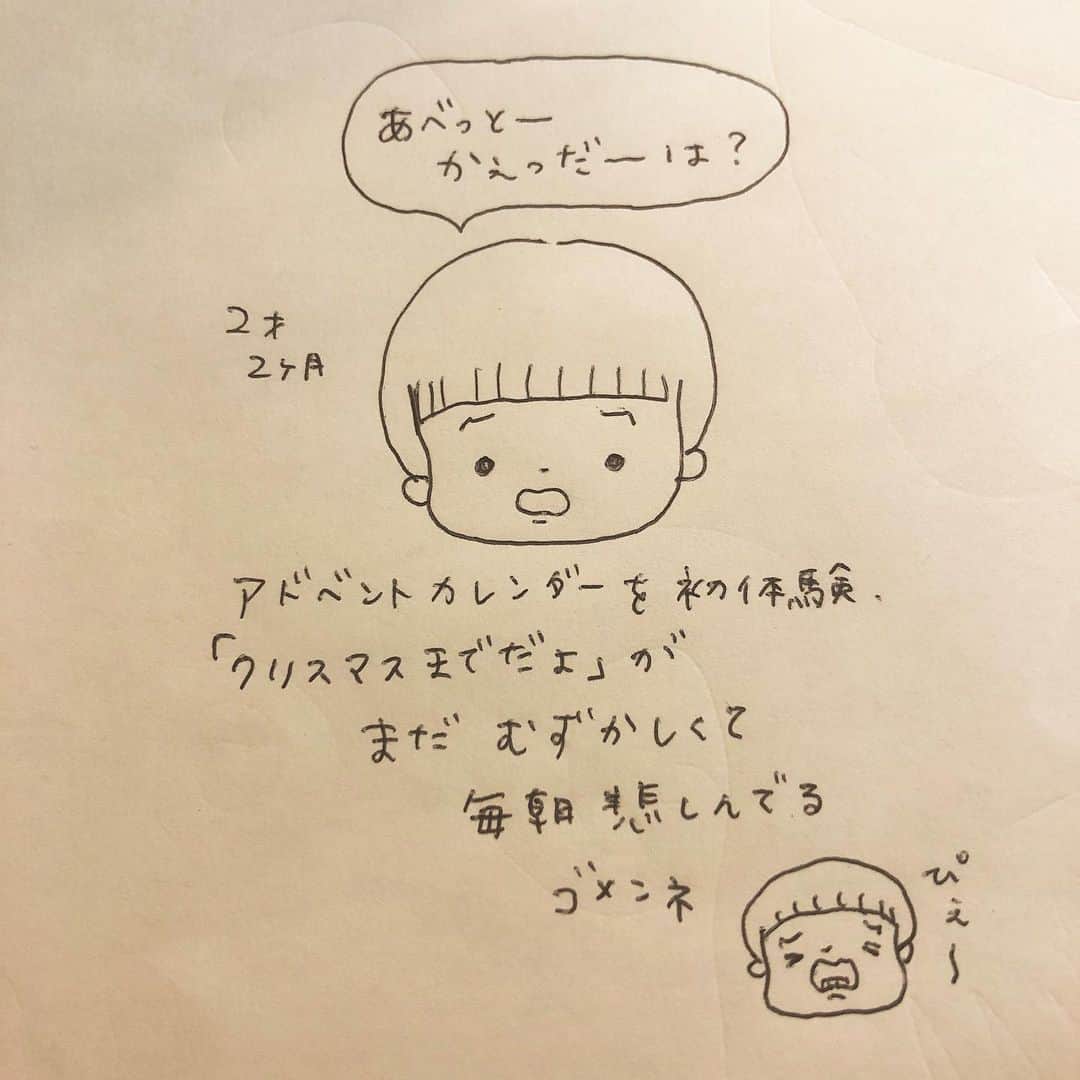 あべっとー
かぇっだーは?
2才
2ヶ月
アドベントカレンダーを初体験.
「クリスマスまでだよ」が
まだ むずかしくて
毎朝 悲しんでる
ゴメンネ
ぴぇ〜